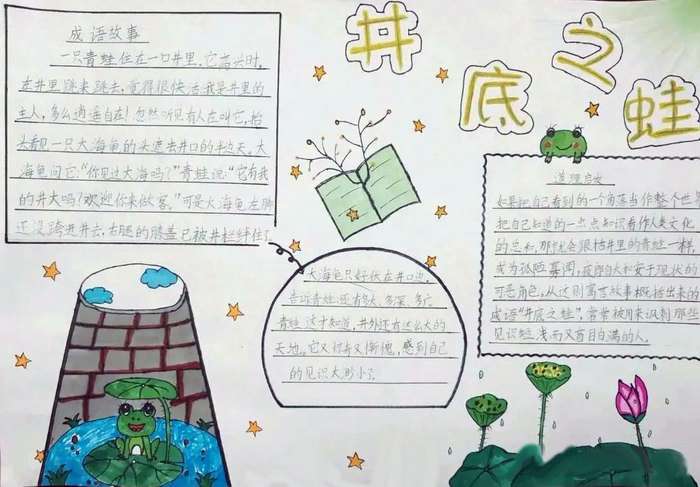 井底之蛙
成语故事
一只青蛙住在一口井里,它高兴时,
在井里跳来跳去,觉得很快活我是井里的
主人,多么逍遥自在!忽然听见有人在叫它,抬
头看见一只大海龟的头遮去井口的半边天,大
海龟问它:“你见过大海吗?”青蛙说:“它有我
的井大吗?欢迎你来做客。”可是大海龟左脚
还没跨进井去,右腿的膝盖已被井栏绊住了
大海龟只好伏在井口边,
告诉青蛙还有多大、多深、多广
青蛙这才知道,井外还有这么大的
天地。它又惊又惭愧,感到自己
的见识太渺小了
道理启发
如果把自己看到的一个角落当作整个世界
把自己知道的一点点知识看作人类文化
的总和,那就会跟枯井里的青蛙一样,
成为孤陋寡闻,夜郎自大和安于现状的
可恶角色,从这则寓言故事概括出来的
成语“井底之蛙”,常常被用来讽刺那些
见识短浅而又盲目自满的人。